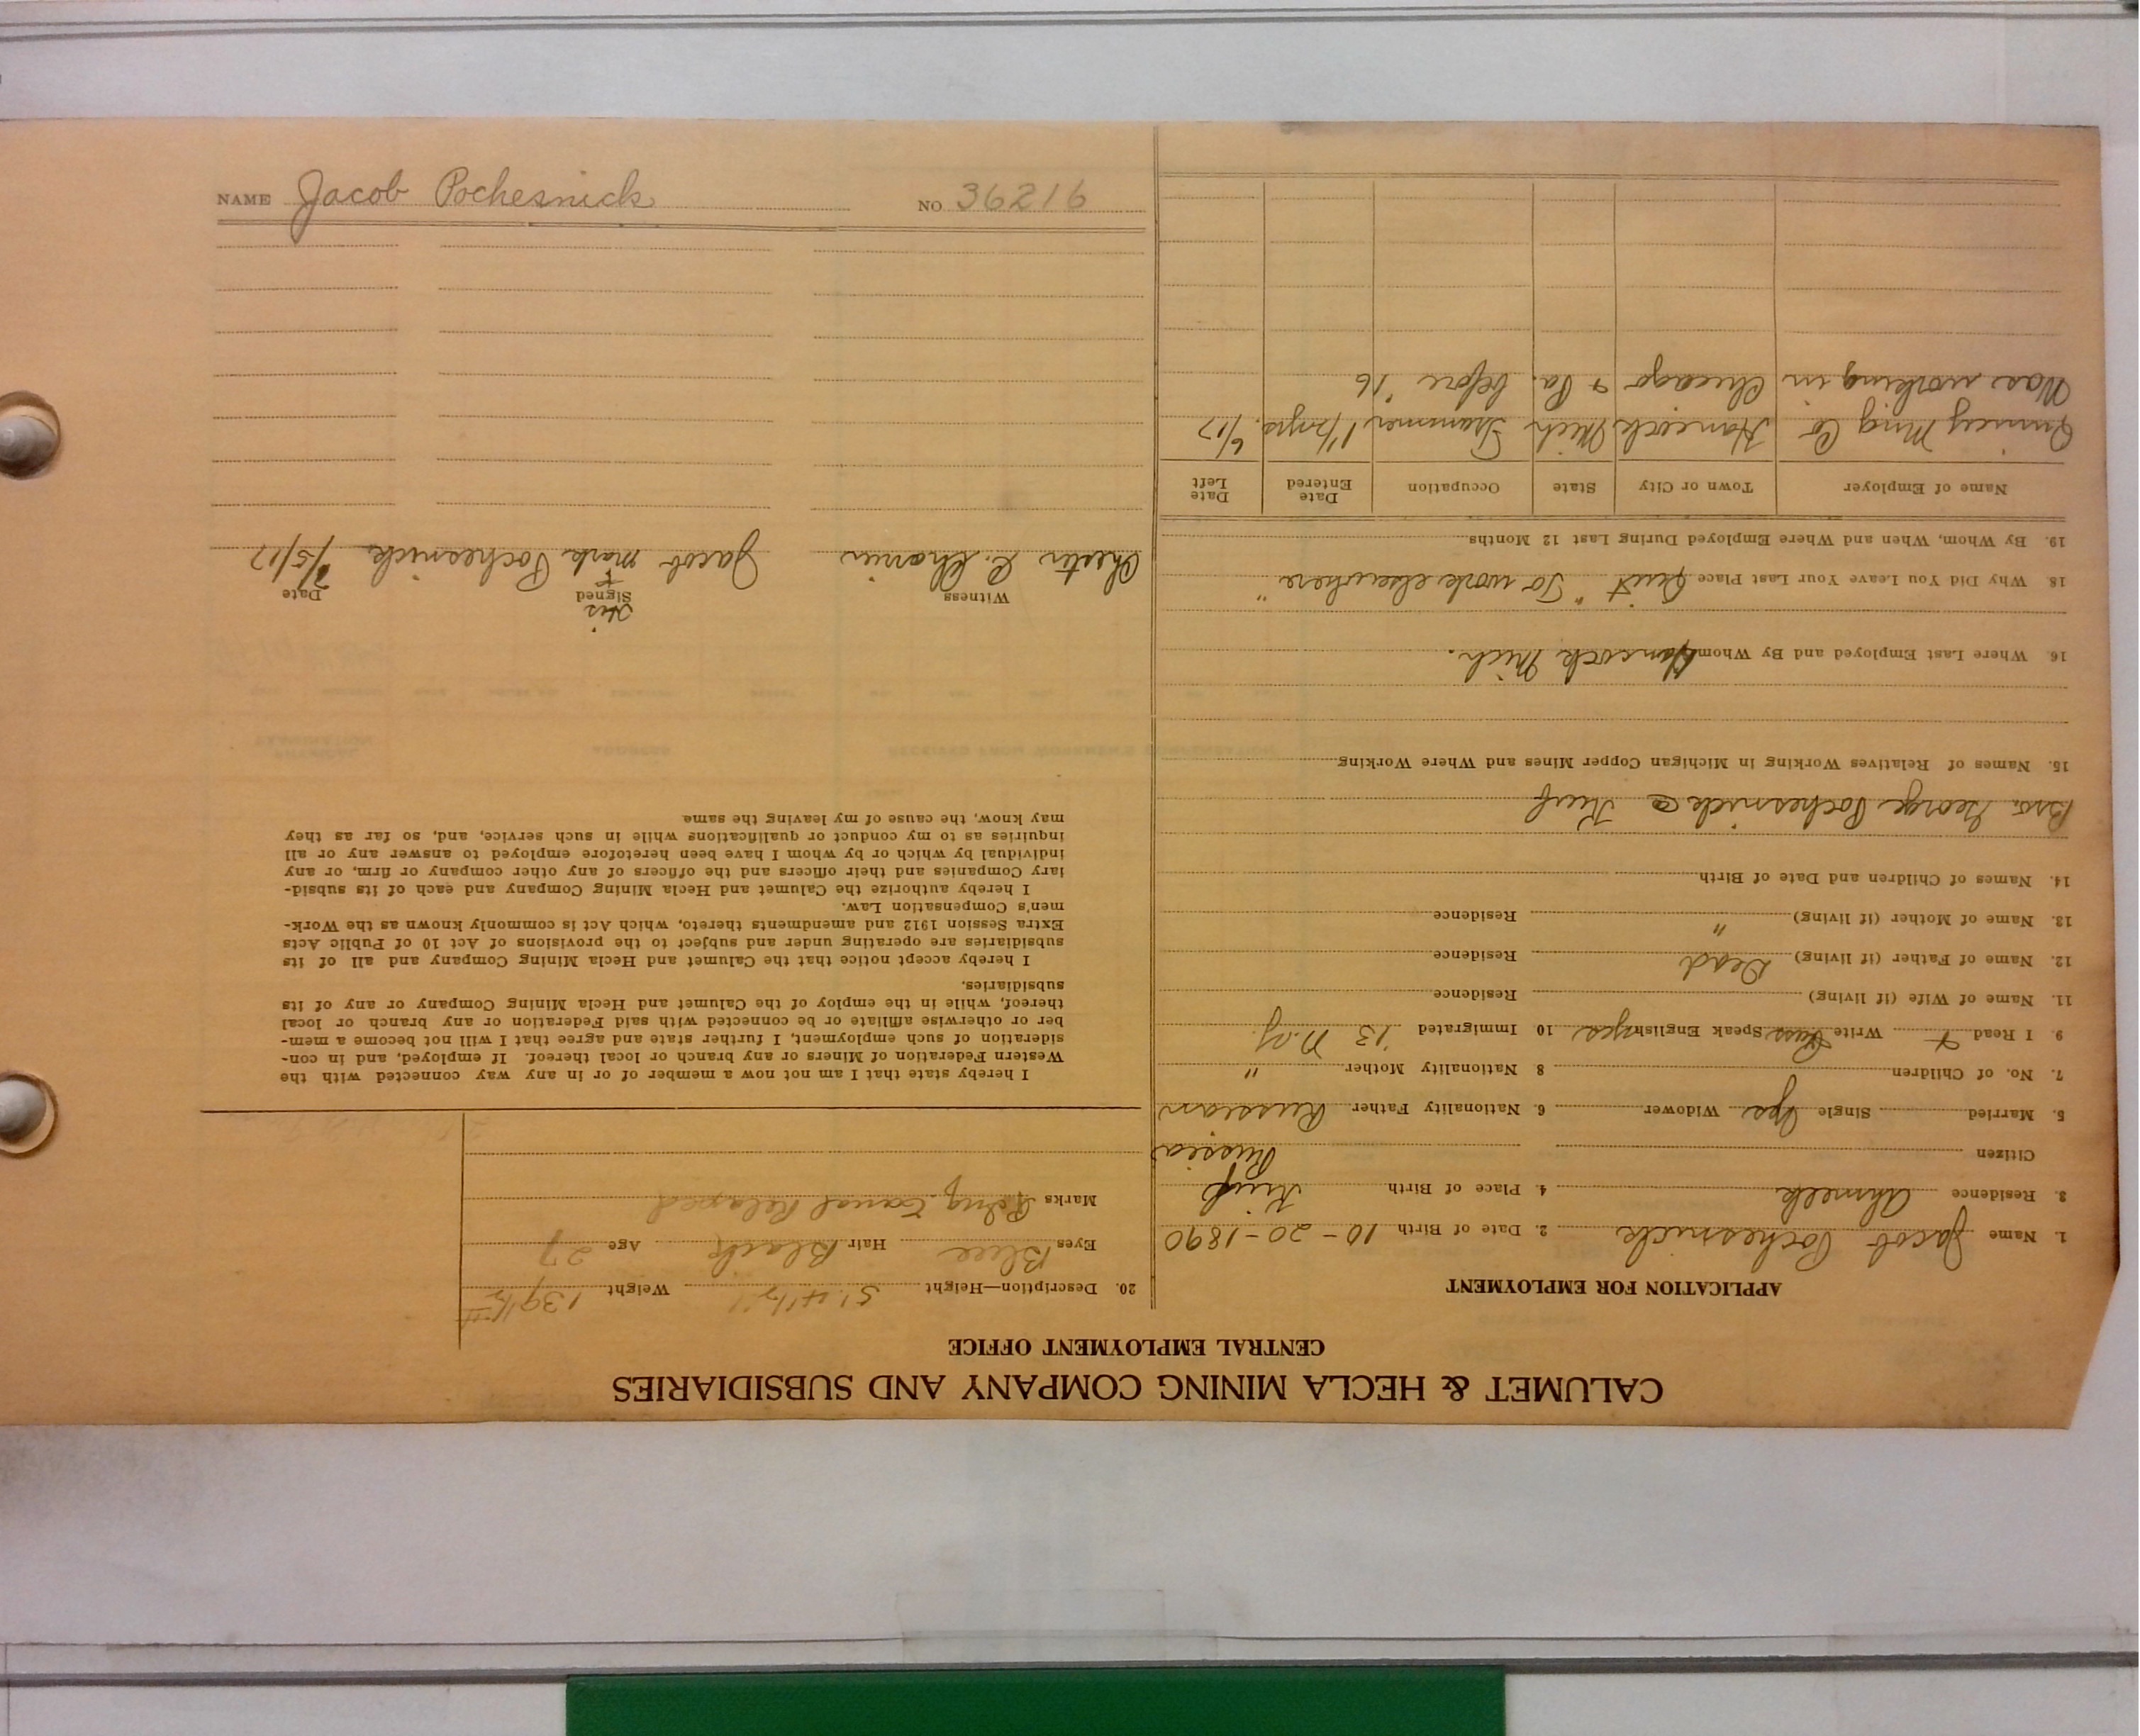 CALUMET & HECLA MINING COMPANY AND SUBSIDIARIES
CENTRAL EMPLOYMENT OFFICE
APPLICATION FOR EMPLOYMENT
1. Name Jacob Pochesnick 2. Date of Birth 10-20-1890
3. Residence Ahmeek 4. Place of Birth Kief
Russia
Citizen
5. Married Single yes Widower 6. Nationality Father Russian
7. No. of Children 8 Nationality Mother "
9. I Read + Write Russ Speak English yes 10 Immigrated '13 N.Y.
11. Name of Wife (if living) Residence
12. Name of Father (if living) Dead Residence
13. Name of Mother (if living) " Residence
14. Names of Children and Date of Birth
Bro. George Pochesnick @ Kief
15. Names of Relatives Working in Michigan Copper Mines and Where Working
16 Where Last Employed and By Whom Hancock Mich.
18 Why Did You Leave Your Last Place Quit "To work elsewhere"
19. By Whom, When and Where Employed During Last 12 Months
Name of Employer Town or City State Occupation Date Entered Date Left
Quincy Mng Co Hancock Mich Trammer 1 1/2 yrs. 6/17
Was working in Chicago + Pa. before '16
20. Description—Height 5' 4 1/2" Weight 139 1/2 #
Eyes Blue Hair Black Age 27
Marks Ring Canal Relaxed
I hereby state that I am not now a member of or in any way connected with the
Western Federation of Miners or any branch or local thereof. If employed, and in con-
sideration of such employment, I further state and agree that I will not become a mem-
ber or otherwise affiliate or be connected with said Federation or any branch or local
thereof, while in the employ of the Calumet and Hecla Mining Company or any of its
subsidiaries.
I hereby accept notice that the Calumet and Hecla Mining Company and all of its
subsidiaries are operating under and subject to the provisions of Act 10 of Public Acts
Extra Session 1912 and amendments thereto, which Act is commonly known as the Work-
men's Compensation Law.
I hereby authorize the Calumet and Hecla Mining Company and each of its subsid-
iary Companies and their officers and the officers of any other company or firm, or any
individual by which or by whom I have been heretofore employed to answer any or all
inquiries as to my conduct or qualifications while in such service, and, so far as they
may know, the cause of my leaving the same
Witness Signed Date
his
Chester C. Jacob x mark Pochesnick /5/17
NAME Jacob Pochesnick NO 36216